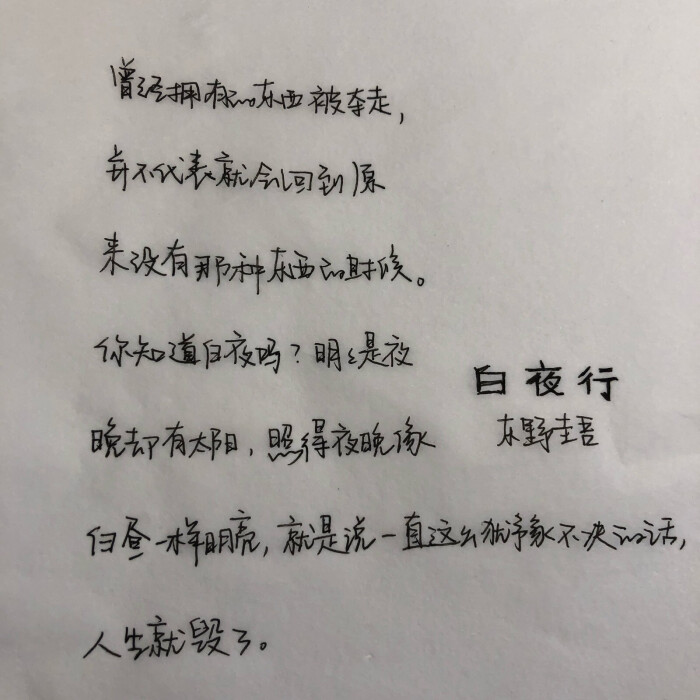 曾经拥有的东西被夺走，
并不代表就会回到原
来没有那种东西的时候。
你知道白夜吗？明明是夜
晚却有太阳，照得夜晚像
白昼一样明亮，就是说一直这么犹豫不决的话，
人生就毁了。
白夜行
东野圭吾